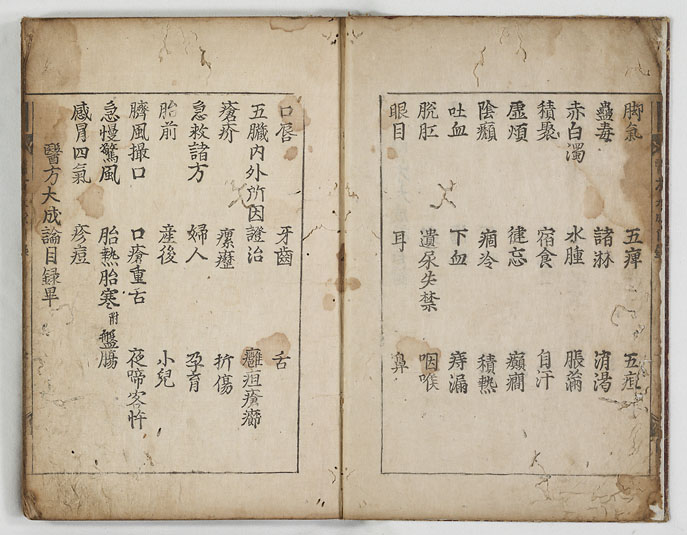 脚氣 五痺 五疸
蠱毒 諸淋 消渇
赤白濁 水腫 脹滿
積聚 宿食 自汗
虚煩 健忘 癲癇
陰㿗 痼冷 積熱
吐血 下血 痔漏
脱肛 遺尿失禁 咽喉
眼目 耳 鼻
口唇 牙齒 舌
五臓内外所因證治 癰疽瘡癤
瘡疥 瘰癧 折傷
急救諸方 婦人 孕育
胎前 産後 小兒
臍風撮口 口瘡重舌 夜啼客忤
急慢驚風 胎熱胎寒附盤腸
感冒四氣 疹痘
醫方大成論目録畢